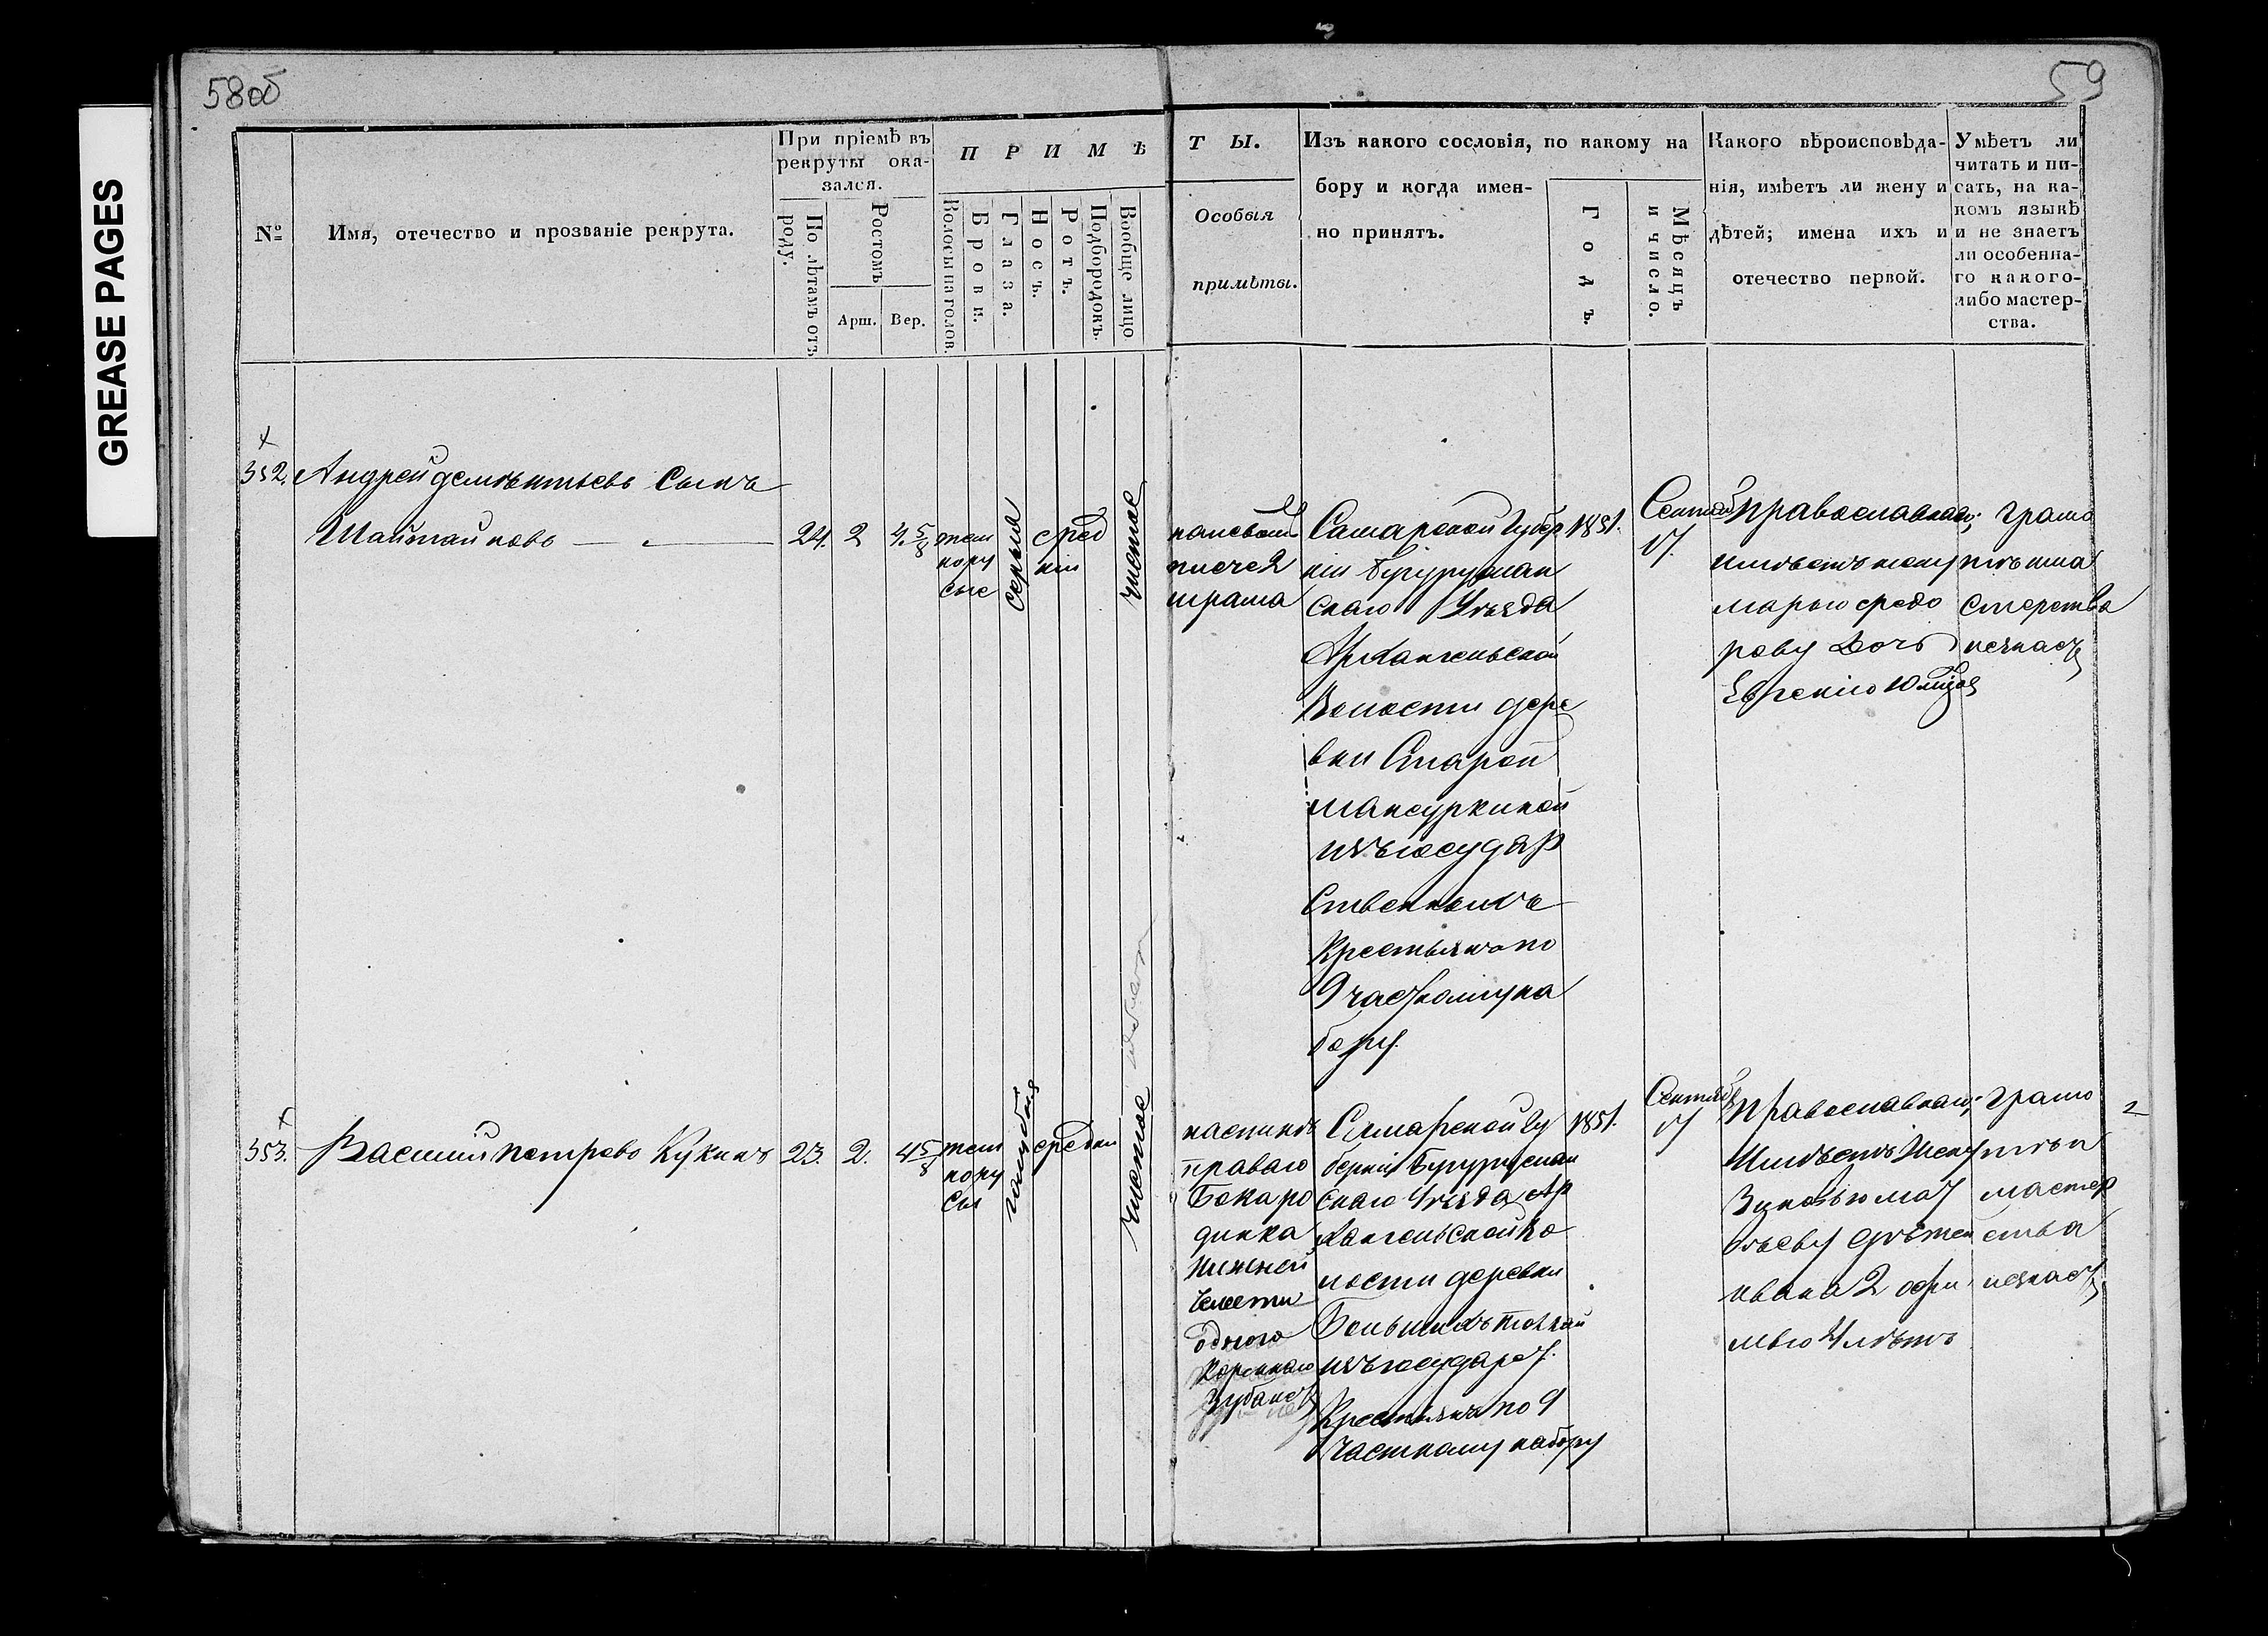 58об
59
GREASE PAGES
№
Имя, отечество и прозваніе рекрута.
При пріемѣ въ
рекруты ока-
зался.
По лѣтамъ отъ
роду.
Ростомъ
Арш.
Вер.
П Р И М Ѣ
Волосы на голов.
Брови.
Глаза.
Носъ.
Ротъ.
Подбородокъ.
Вообще лицо
Т Ы.
Особыя
примѣты.
Изъ какого сословія, по какому на
бору и когда имен-
но принятъ.
Годъ.
Мѣсяцъ
и число.
Какого вѣроисповѣда-
нія, имѣетъ ли жену и
дѣтей; имена ихъ и
отечество первой.
Умѣетъ ли
читать и пи-
сать, на ка-
комъ языкѣ
и не знаетъ
ли особенна-
го какого-
либо мастер-
ства.
352.
Андрей дементьевъ Сынъ
Шайтановъ
24.
2
4 5/8
темно
русые
серыя
сред
нiи
чистое
на левой
плече 2
шрама
Самарской Губер
ніи Бугуруслан
скаго Уѣзда
Архангельской
Волости дере
вни Старой
мансуркиной
изъ государ
ственныхъ
Крестьянъ по
9 част ному на
бору
1851.
Сентяб
17.
православнаго;
имѣетъ жену
марью федо
рову Дочь
Евгенiю
грамо
тѣ и ма
стерства
незнаетъ
353.
Василiй петровъ Кукинъ
23.
2.
4 5/8
темно
русы
голубыя
средни
чистое
на
праваго
Бока ро
динка
Нижней
челюсти
одного
Кореннаго
Зуба нетъ
Самарской Гу
берніи Бугуруслан
скаго Уѣзда Ар
хангельской Во
лости деревни
изъ государст.
Крестьянъ по 9
частному набору
1851.
Сентяб
17
православнаго;
Имѣетъ Жену
мат
вѣеву дѣтей
ивана 2
грамо
тѣ и
мастер
ства
незнаетъ
2